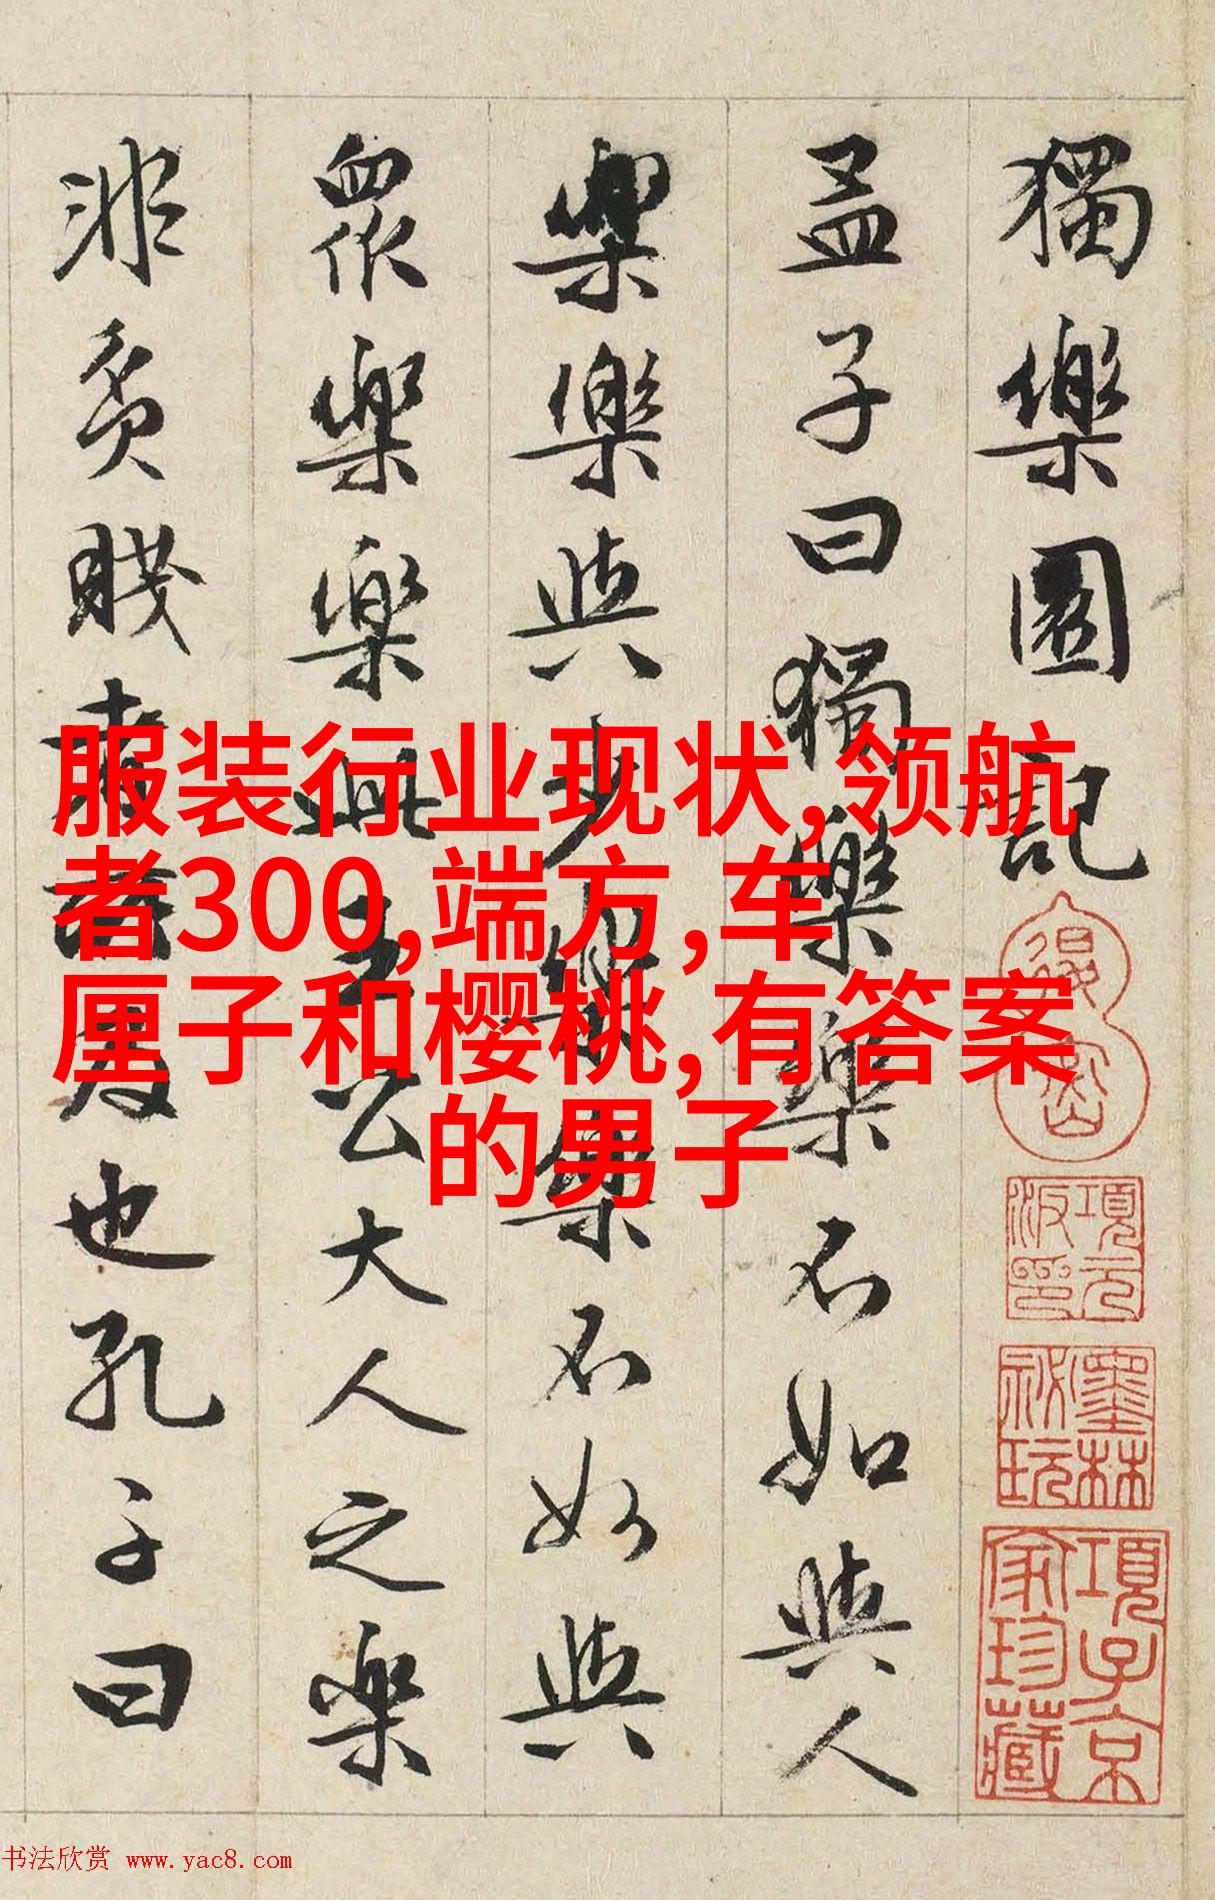 獨樂園記
孟子曰獨樂樂不如與人
樂樂與少樂樂不如與
衆樂樂此王公大人之樂
非貧賤者所及也孔子曰
退密
項元汴印
墨林秘玩
項子京家珍藏
服装行业现状,领航
者300,端方,车
厘子和樱桃,有答案
的男子
书法欣赏 www.yac8.com